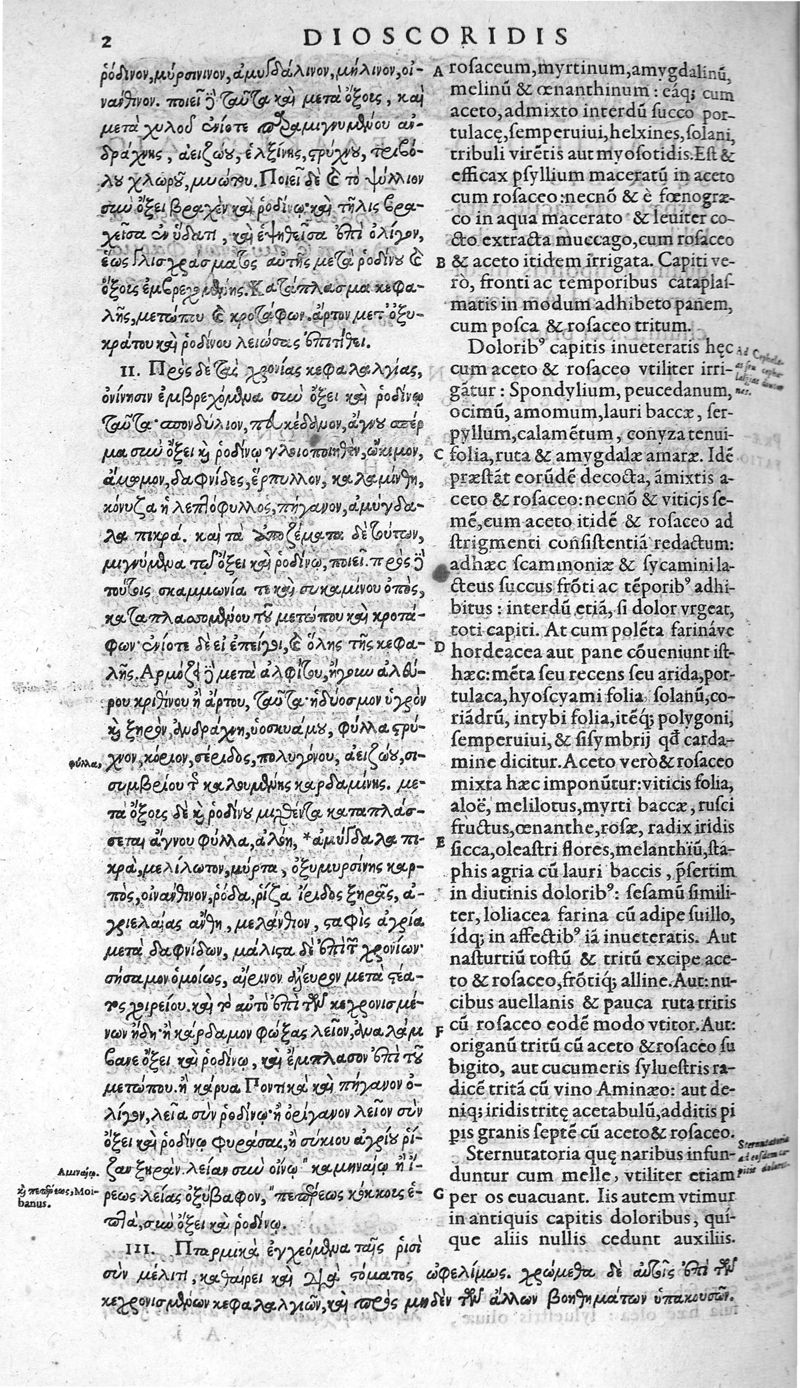 2 DIOSCORIDIS
ῥόδινον, μύρσινινον, ἀμυγδάλινον, μήλινον, οἰ-
νάνθινον. ποιεῖ δὲ ταῦτα καὶ μετὰ ὄξοις, καὶ
μετὰ χυλοῦ ἐνίοτε παραμιγνυμένου ἀν-
δράχνης, ἀειζώου, ἑλξίνης, στρύχνου, τριβό-
λου χλωροῦ, μυώτου. Ποιεῖ δὲ καὶ τὸ ψύλλιον
σὺν ὄξει βραχὲν καὶ ῥοδίνῳ· καὶ τῆλις βρα-
χεῖσα ἐν ὕδατι, καὶ ἑψηθεῖσα ἐπὶ ὀλίγον,
ἕως γλισχράσματος αὐτῆς μετὰ ῥοδίνου καὶ
ὄξοις ἐμβρεχομένης. Κατάπλασμα κεφα-
λῆς, μετώπου καὶ κροτάφων. ἄρτον μετ' ὀξυ-
κράτου καὶ ῥοδίνου λειώσας ἐπιτίθει.
11. Πρὸς δὲ τὰς χρονίας κεφαλαλγίας,
ὀνίνησιν ἐμβρεχόμενα σὺν ὄξει καὶ ῥοδίνῳ
ταῦτα· σπονδύλιον, πευκέδανον, ἄγνου σπέρ
μα σὺν ὄξει καὶ ῥοδίνῳ γλοιοποιηθὲν, ὤκιμον,
ἄμωμον, δαφνίδες, ἕρπυλλον, καλαμίνθη,
κόνυζα ἡ λεπτόφυλλος, πήγανον, ἀμύγδα-
λα πικρά. καὶ τὰ ἀποζέματα δὲ τούτων,
μιγνύμενα τῷ ὄξει καὶ ῥοδίνῳ, ποιεῖ. πρὸς δὲ
τούτοις σκαμμωνία τε καὶ συκαμίνου ὀπὸς,
καταπλασσομένου τοῦ μετώπου καὶ κροτά-
φων· ἐνίοτε δὲ εἰ ἐπείγει, καὶ ὅλης τῆς κεφα-
λῆς. Ἁρμόζει δὲ μετὰ ἀλφίτου, ἤτοι ἀλεύ-
ρου κριθίνου ἢ ἄρτου, ταῦτα· ἡδύοσμον ὑγρὸν
καὶ ξηρὸν, ἀνδράχνη, ὑοσκυάμου, φύλλα στρύ-
χνον, κόριον, σέριδος, πολυγόνου, ἀειζώου, σι-
συμβρίου τῆς καλουμένης καρδαμίνης. με-
τὰ ὄξοις δὲ καὶ ῥοδίνου μιχθέντα καταπλάσ-
σεται ἄγνου φύλλα, ἀλόη, *ἀμύγδαλα πι-
κρὰ, μελίλωτον, μύρτα, ὀξυμυρσίνης καρ-
πὸς, οἰνάνθινον, ῥόδα, ῥίζα ἴριδος ξηρᾶς, ἀ-
γριελαίας ἄνθη, μελάνθιον, σταφὶς ἀγρία
μετὰ δαφνίδων, μάλιστα δὲ ἐπὶ τῶν χρονίων·
σήσαμον ὁμοίως, αἴρινον ἄλευρον μετὰ στέα-
τος χοιρείου. καὶ τὸ αὐτὸ ἐπὶ τῶν κεχρονισμέ-
νων ἤδη· ἢ κάρδαμον φώξας λεῖον, ἀναλάμ
βανε ὄξει καὶ ῥοδίνῳ, καὶ ἔμπλασον ἐπὶ τοῦ
μετώπου. ἢ κάρυα Ποντικὰ καὶ πήγανον ὀ-
λίγον, λεῖα σὺν ῥοδίνῳ· ἢ ὀρίγανον λεῖον σὺν
ὄξει καὶ ῥοδίνῳ φυράσας, ἢ σύκιου ἀγρίου ῥί-
ζαν ξηρὰν λείαν σὺν οἴνῳ "καμηναίῳ ἢ ἴ-
ρεως λείας ὀξύβαφον, "πεπέρεως κόκκοις ἑ-
πτὰ, σὺν ὄξει καὶ ῥοδίνῳ.
111. Πταρμικὰ ἐγχεόμενα ταῖς ῥισὶ
σὺν μέλιτι, καθαίρει καὶ διὰ στόματος ὠφελίμως. χρώμεθα δὲ αὐτοῖς ἐπὶ τῶν
κεχρονισμένων κεφαλαλγιῶν, καὶ πρὸς μηδὲν τῶν ἄλλων βοηθημάτων ὑπακουσῶν.
φύλλα,
Ἀμιναίῳ.
καὶ πεπέρεως, Moi-
banus.
A rosaceum, myrtinum, amygdalinũ,
melinũ & œnanthinum: eáq; cum
aceto, admixto interdũ succo por-
tulacę, semperuiui, helxines, solani,
tribuli virẽtis aut myosotidis. Est &
efficax psyllium maceratũ in aceto
cum rosaceo: necnõ & è fœnogræ-
co in aqua macerato & leuiter co-
cto extracta muccago, cum rosaceo
B & aceto itidem irrigata. Capiti ve-
rò, fronti ac temporibus cataplas-
matis in modum adhibeto panem,
cum posca & rosaceo tritum.
Doloribꝰ capitis inueteratis hęc
cum aceto & rosaceo vtiliter irri-
gãtur: Spondylium, peucedanum,
ocimũ, amomum, lauri baccæ, ser-
pyllum, calamẽtum, conyza tenui-
C folia, ruta & amygdalæ amaræ. Idẽ
præstãt eorũdẽ decocta, ãmixtis a-
ceto & rosaceo: necnõ & viticis se-
mẽ, cum aceto itidẽ & rosaceo ad
strigmenti consistentiã redactum:
adhæc scammoniæ & sycamini la-
cteus succus frõti ac tẽporibꝰ adhi-
bitus: interdũ etiã, si dolor vrgeat,
toti capiti. At cum polẽta farináve
D hordeacea aut pane cõueniunt ist-
hæc: mẽta seu recens seu arida, por-
tulaca, hyoscyami folia solanũ, co-
riãdrũ, intybi folia, itẽq; polygoni,
semperuiui, & sisymbrij qđ carda-
mine dicitur. Aceto verò & rosaceo
mixta hæc imponũtur: viticis folia,
aloë, melilotus, myrti baccæ, rusci
fructus, œnanthe, rosæ, radix iridis
E sicca, oleastri flores, melanthiũ, sta-
phis agria cũ lauri baccis, p̃sertim
in diutinis doloribꝰ: sesamũ simili-
ter, loliacea farina cũ adipe suillo,
ídq; in affectibꝰ iã inueteratis. Aut
nasturtiũ tostũ & tritũ excipe ace-
to & rosaceo, frõtiq; alline. Aut: nu-
cibus auellanis & pauca ruta tritis
F cũ rosaceo eodẽ modo vtitor. Aut:
origanũ tritũ cũ aceto & rosaceo su
bigito, aut cucumeris syluestris ra-
dicẽ tritã cũ vino Aminæo: aut de-
niq; iridis tritę acetabulũ, additis pi
pis granis septẽ cũ aceto & rosaceo.
Sternutatoria quę naribus infun-
duntur cum melle, vtiliter etiam
G per os euacuant. Iis autem vtimur
in antiquis capitis doloribus, quí-
que aliis nullis cedunt auxiliis.
Sternutatoria